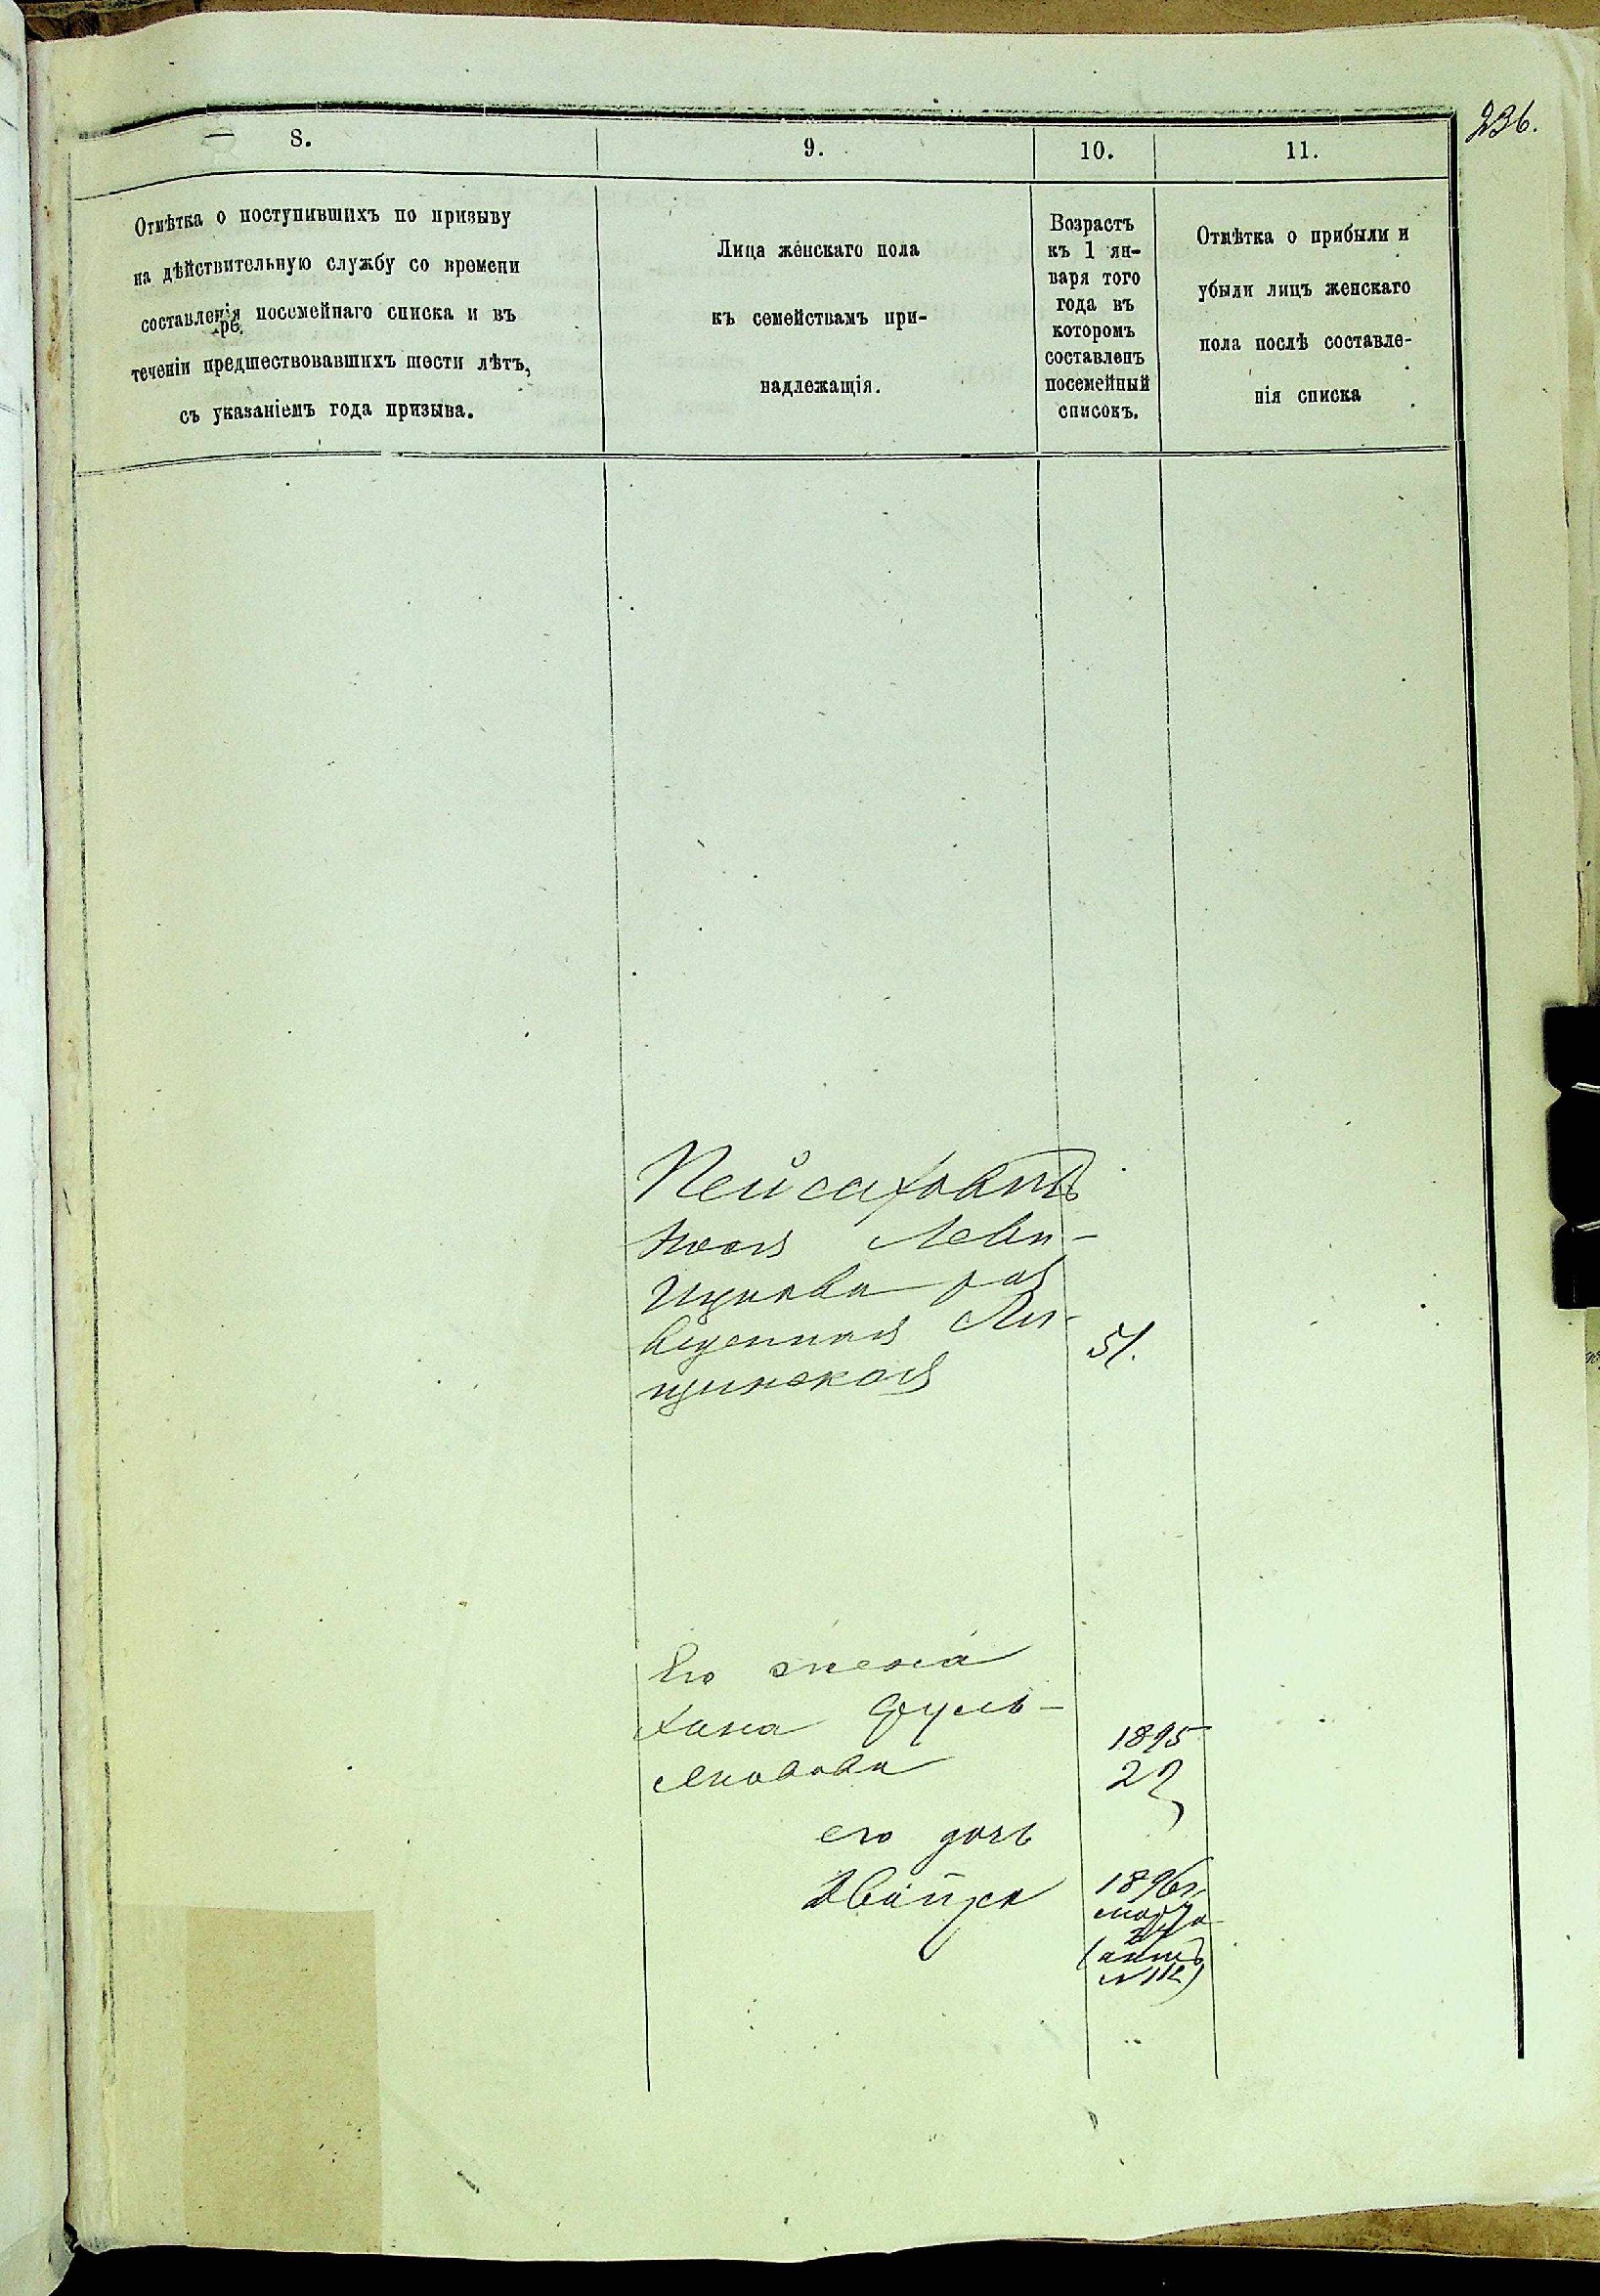 236.
8.
9.
10.
11.
Отмѣтка о поступившихъ по призыву
на дѣйствительную службу со времени
составленія посемейнаго списка и въ
теченіи предшествовавшихъ шести лѣтъ,
съ указаніемъ года призыва.
Лица женскаго пола
къ семействамъ при-
надлежащія.
Возрастъ
къ 1 ян-
варя того
года въ
которомъ
составленъ
посемейный
списокъ.
Отмѣтка о прибыли и
убыли лицъ женскаго
пола послѣ составле-
нія списка
Леви-
Ицкова раз
веденная
51.
Его жена
Хана
1895
Янкова
27
его дочь
Двейра
1896 г.
марта
(актъ
N 112)